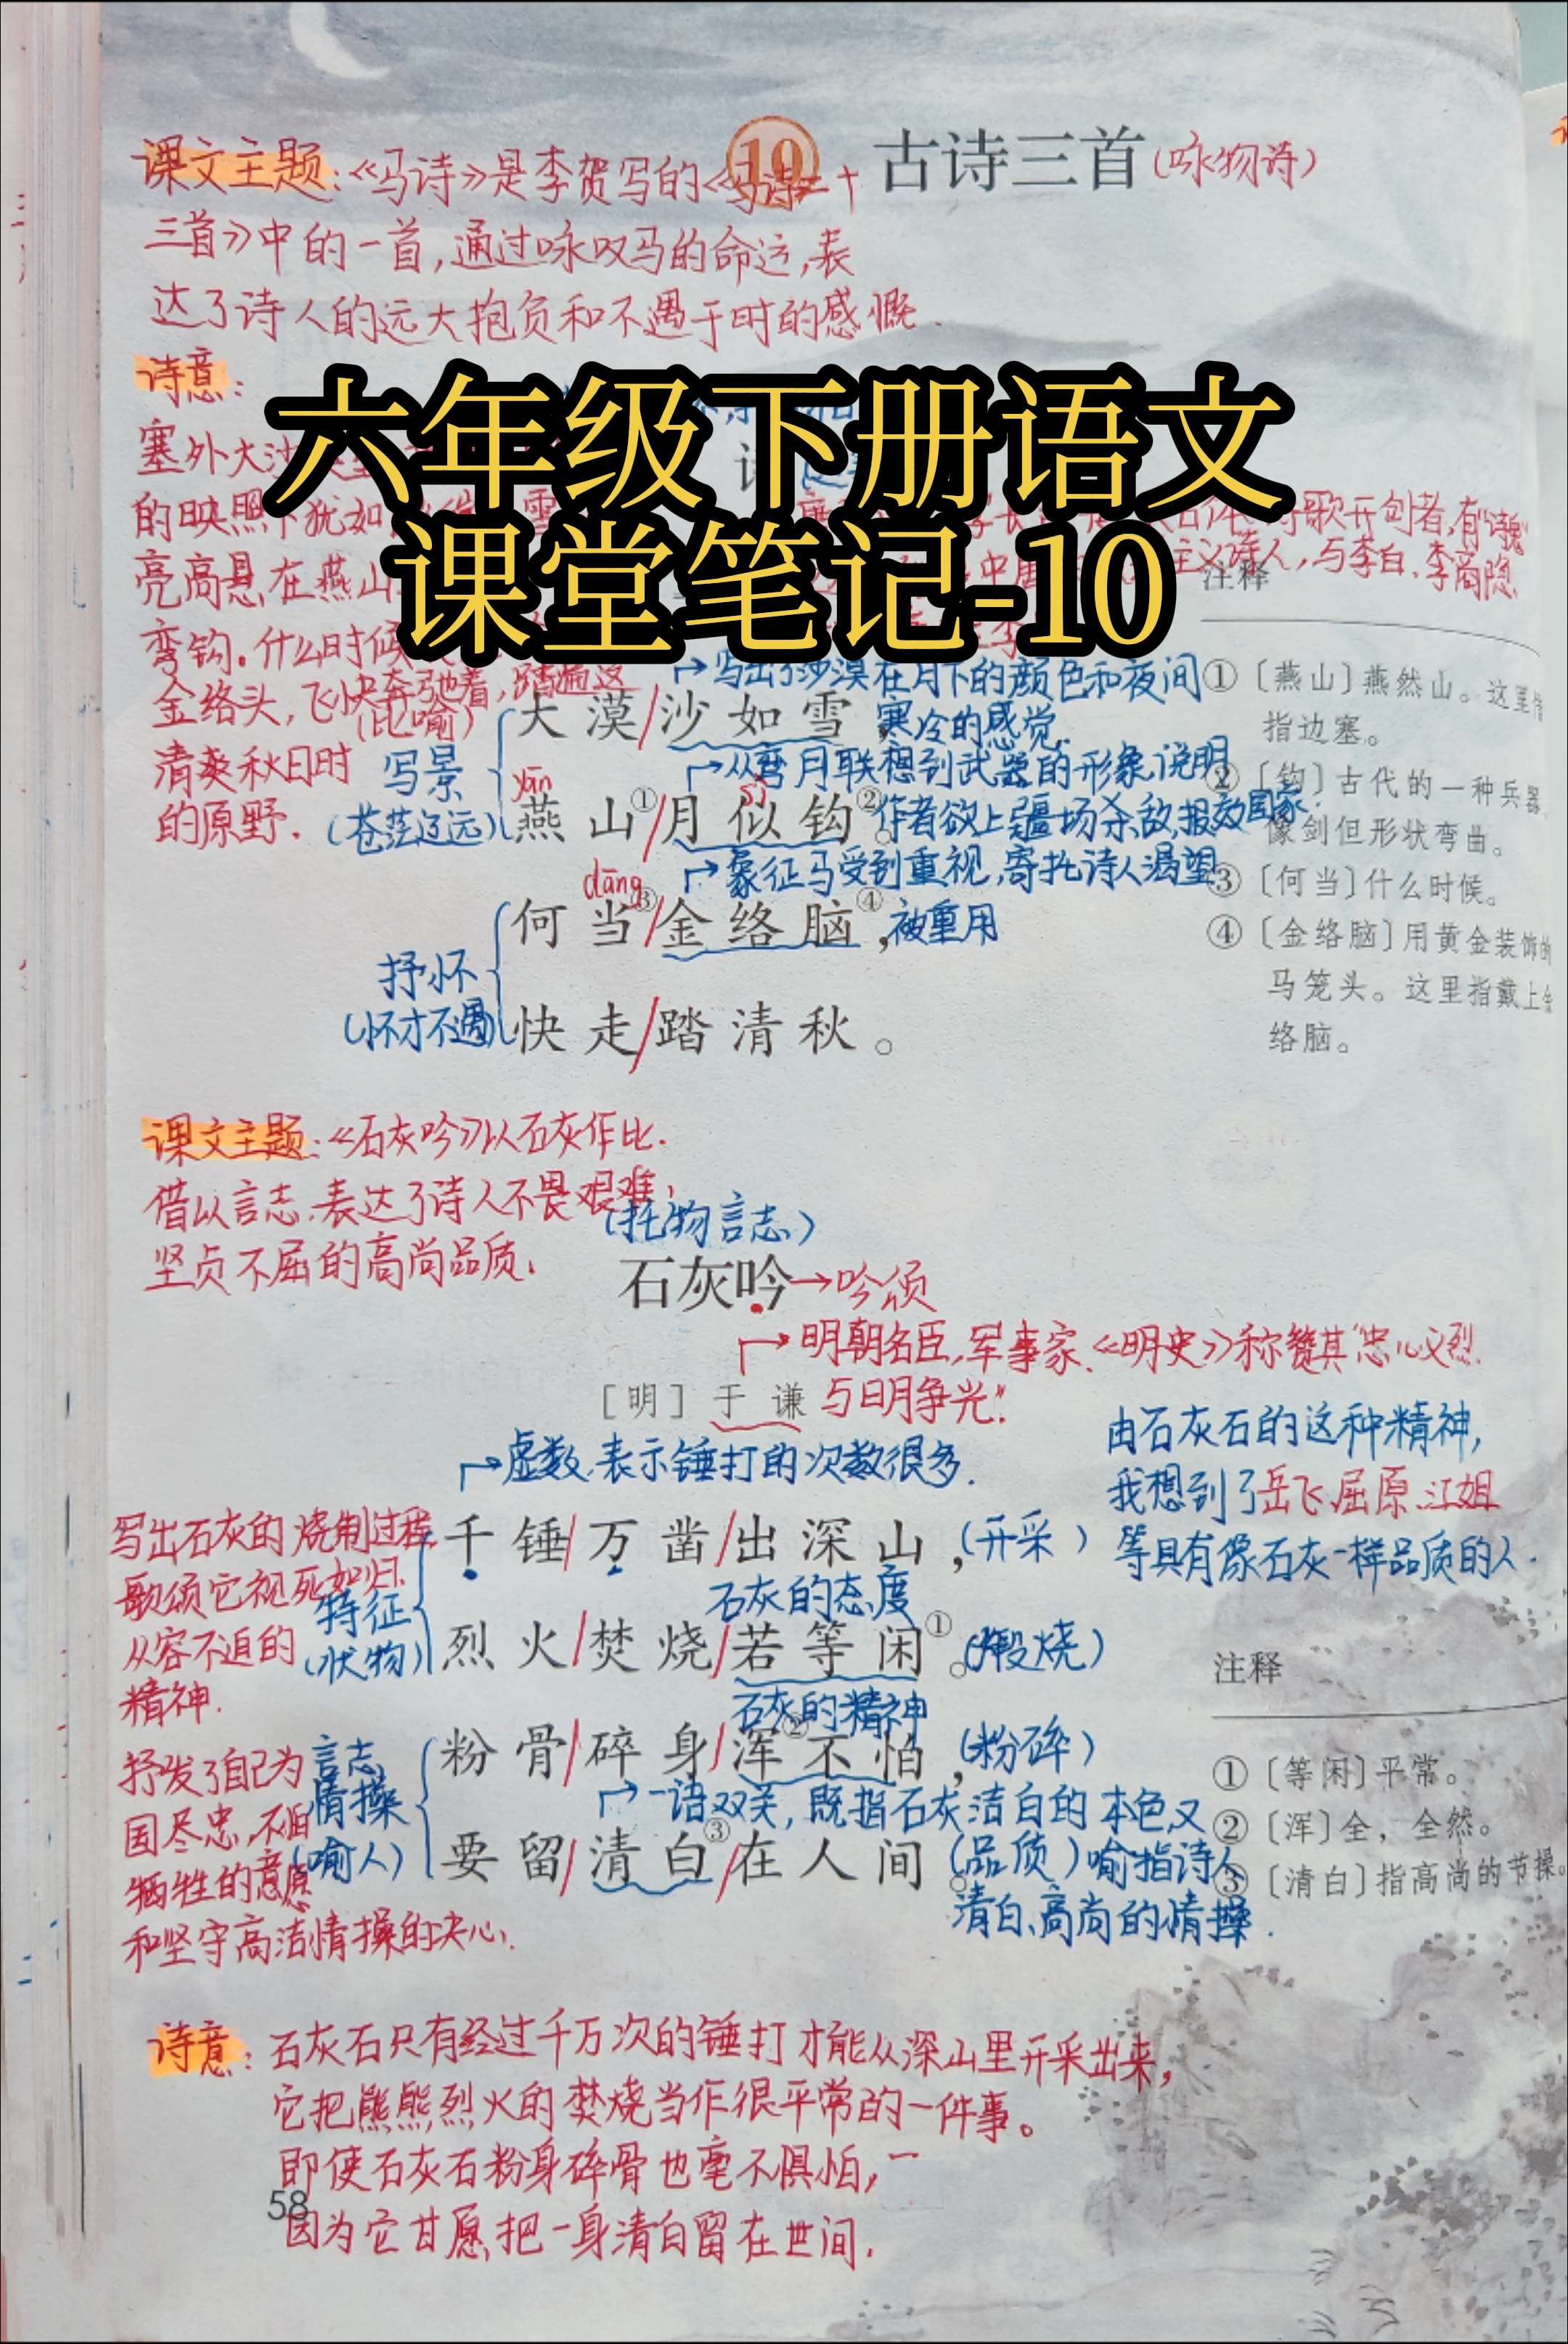 10 古诗三首(咏物诗)
课文主题:《马诗》是李贺写的《马诗二十
三首》中的一首,通过咏叹马的命运,表
达了诗人的远大抱负和不遇于时的感慨.
诗意:
六年级下册语文
课堂笔记-10
塞外大沙
的映照下犹如
亮高悬在燕山
弯钩。什么时候
金络头,飞快奔驰着,踏遍这
清爽秋日时
的原野.
诗歌开创者,有“诗鬼”
主义诗人,与李白、李商隐
注释
①〔燕山〕燕然山。这里借
指边塞。
②〔钩〕古代的一种兵器
像剑但形状弯曲。
③〔何当〕什么时候。
④〔金络脑〕用黄金装饰的
马笼头。这里指戴上金
络脑。
→写出了沙漠在月下的颜色和夜间
寒冷的感觉.
(比喻)
大漠/沙如雪
写景
(苍茫辽远)
→从弯月联想到武器的形象,说明
作者欲上疆场杀敌,报效国家.
yān
sì
燕山①/月似钩②。
→象征马受到重视,寄托诗人渴望
被重用
dāng
何当③/金络脑④,
抒怀
(怀才不遇)
快走/踏清秋。
课文主题:《石灰吟》以石灰作比.
借以言志.表达了诗人不畏艰难,
坚贞不屈的高尚品质.
(托物言志)
石灰吟→吟颂
→明朝名臣,军事家.《明史》称赞其“忠心义烈.
与日月争光”.
[明]于谦
→虚数.表示锤打的次数很多.
由石灰石的这种精神,
我想到了岳飞.屈原.江姐
等具有像石灰一样品质的人.
写出石灰的烧制过程,
歌颂它视死如归.
从容不迫的
精神.
特征
(状物)
千锤/万凿/出深山,(开采)
石灰的态度
烈火/焚烧/若等闲①。(煅烧)
石灰的精神
粉骨/碎身/浑②不怕,(粉碎)
→一语双关,既指石灰洁白的本色,又
喻指诗人
清白、高尚的情操.
要留/清白③/在人间。(品质)
抒发了自己为
国尽忠,不怕
牺牲的意愿
和坚守高洁情操的决心.
言志
情操
(喻人)
注释
①〔等闲〕平常。
②〔浑〕全,全然。
③〔清白〕指高尚的节操。
诗意:石灰石只有经过千万次的锤打才能从深山里开采出来,
它把熊熊烈火的焚烧当作很平常的一件事。
即使石灰石粉身碎骨也毫不惧怕,
因为它甘愿把一身清白留在世间.
58